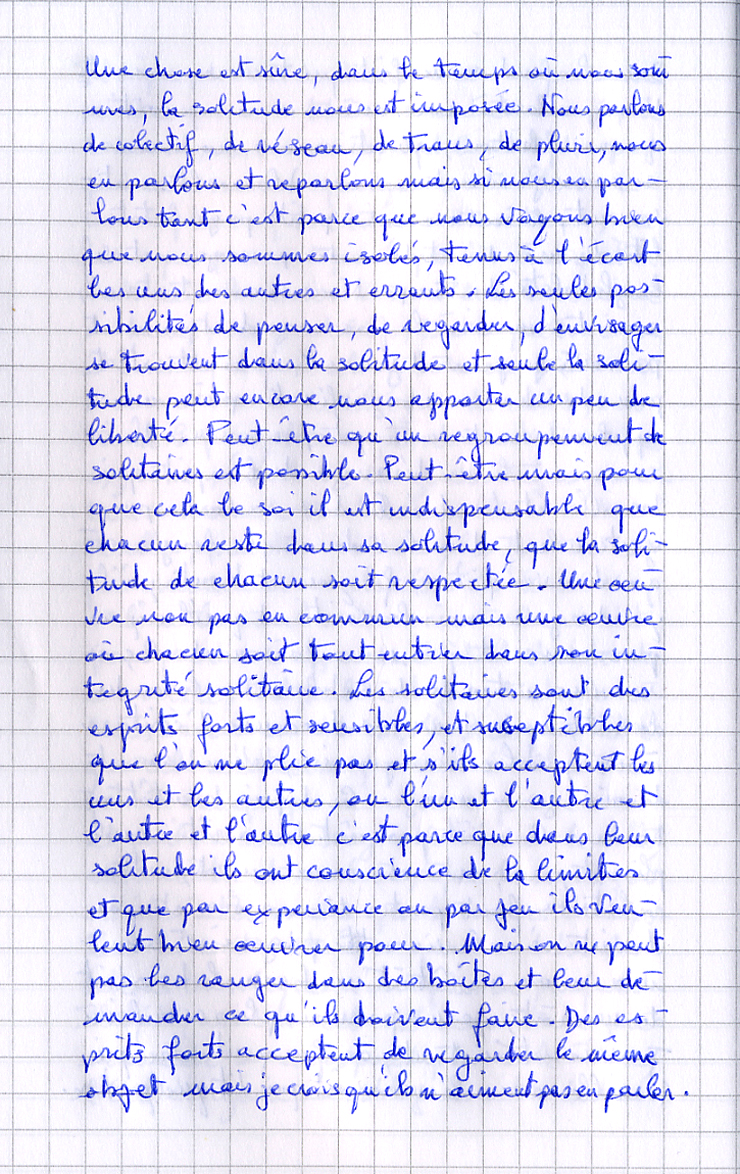 Une chose est sûre, dans le temps où nous sommes
, la solitude nous est imposée. Nous parlons
de colectif, de réseau, de trans, de pluri, nous
en parlons et reparlons mais si nous en par-
lons tant c'est parce que nous voyons bien
que nous sommes isolés, tenus à l'écart
les uns des autres et errants. Les seules pos-
sibilités de penser, de regarder, d'envisager
se trouvent dans la solitude et seule la soli-
tude peut encore nous apporter un peu de
liberté. Peut-être qu'un regroupement de
solitaires est possible. Peut-être mais pour
que cela le soi il est indispensable que
chacun reste dans sa solitude, que la soli-
tude de chacun soit respectée. Une oeu-
vre non pas en commun mais une oeuvre
où chacun soit tout entier dans son in-
tegrité solitaire. Les solitaires sont des
esprits forts et sensibles, et suseptibles
que l'on ne plie pas et s'ils acceptent les
uns et les autres, ou l'un et l'autre et
l'autre et l'autre c'est parce que dans leur
solitude ils ont conscience de la limites
et que par experiance ou par jeu ils veu-
lent bien oeuvrer pour. Mais on ne peut
pas les ranger dans des boîtes et leur de-
mander ce qu'ils doivent faire. Des es-
prits forts acceptent de regarder le même
objet mais je crois qu'ils n'aiment pas en parler.